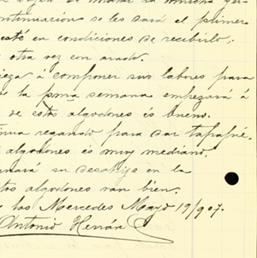 continuacion se les dará el primer
está en condiciones de recibirlo,
otra vez con arado.
á componer sus labores para
la pma semana empezará á
de estos algodones és bueno.
regando para dar tapapié.
algodones és muy mediano.
su desahije en la
tos algodones van bien.
las Mercedes Mayo 19/907.
Antonio Herrán